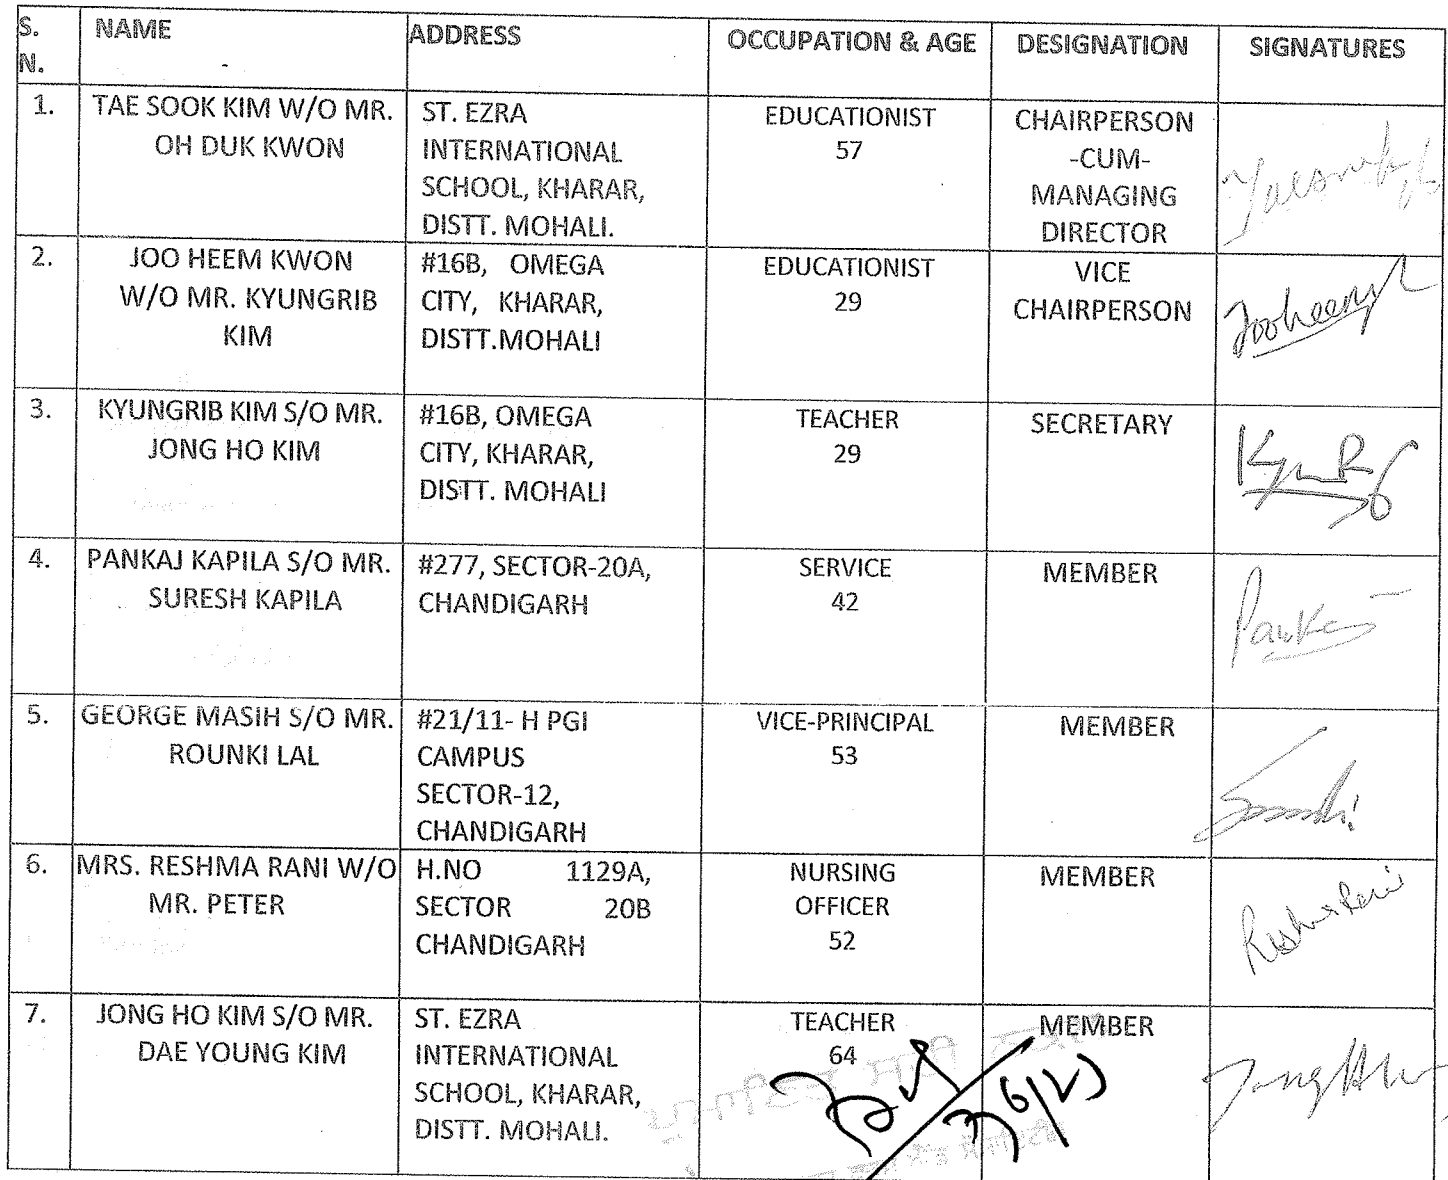 S. N. NAME ADDRESS OCCUPATION & AGE DESIGNATION SIGNATURES
1. TAE SOOK KIM W/O MR. OH DUK KWON
ST. EZRA
INTERNATIONAL
SCHOOL, KHARAR,
DISTT. MOHALI.
EDUCATIONIST
57
CHAIRPERSON
-CUM-
MANAGING
DIRECTOR
2. JOO HEEM KWON
W/O MR. KYUNGRIB
KIM
#16B, OMEGA
CITY, KHARAR,
DISTT.MOHALI
EDUCATIONIST
29
VICE
CHAIRPERSON
3. KYUNGRIB KIM S/O MR.
JONG HO KIM
#16B, OMEGA
CITY, KHARAR,
DISTT. MOHALI
TEACHER
29
SECRETARY
4. PANKAJ KAPILA S/O MR.
SURESH KAPILA
#277, SECTOR-20A,
CHANDIGARH
SERVICE
42
MEMBER
5. GEORGE MASIH S/O MR.
ROUNKI LAL
#21/11- H PGI
CAMPUS
SECTOR-12,
CHANDIGARH
VICE-PRINCIPAL
53
MEMBER
6. MRS. RESHMA RANI W/O
MR. PETER
H.NO 1129A,
SECTOR 20B
CHANDIGARH
NURSING
OFFICER
52
MEMBER
Reshma Rani
7. JONG HO KIM S/O MR.
DAE YOUNG KIM
ST. EZRA
INTERNATIONAL
SCHOOL, KHARAR,
DISTT. MOHALI.
TEACHER
64
MEMBER